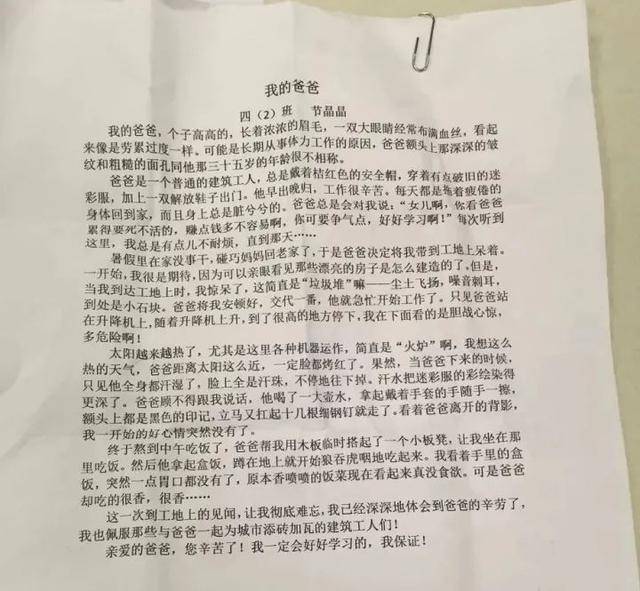 我的爸爸
四（2）班 节晶晶
我的爸爸，个子高高的，长着浓浓的眉毛，一双大眼睛经常布满血丝，看起
来像是劳累过度一样。可能是长期从事体力工作的原因，爸爸额头上那深深的皱
纹和粗糙的面孔同他那三十五岁的年龄很不相称。
爸爸是一个普通的建筑工人，总是戴着桔红色的安全帽，穿着有点破旧的迷
彩服，加上一双解放鞋子出门。他早出晚归，工作很辛苦。每天都是拖着疲倦的
身体回到家，而且身上总是脏兮兮的。爸爸总是会对我说：“女儿啊，你看爸爸
累得要死不活的，赚点钱多不容易啊，你可要争气点，好好学习啊！”每次听到
这里，我总是有点儿不耐烦，直到那天……
暑假里在家没事干，碰巧妈妈回老家了，于是爸爸决定将我带到工地上呆着。
一开始，我很是期待，因为可以亲眼看见那些漂亮的房子是怎么建造的了，但是，
当我到达工地上时，我惊呆了，这简直是“垃圾堆”嘛——尘土飞扬，噪音刺耳，
到处是小石块。爸爸将我安顿好，交代一番，他就急忙开始工作了。只见爸爸站
在升降机上，随着升降机上升，到了很高的地方停下，我在下面看的是胆战心惊，
多危险啊！
太阳越来越热了，尤其是这里各种机器运作，简直是“火炉”啊，我想这么
热的天气，爸爸距离太阳这么近，一定脸都烤红了。果然，当爸爸下来的时候，
只见他全身都汗湿了，脸上全是汗珠，不停地往下掉。汗水把迷彩服的彩绘染得
更深了。爸爸顾不得跟我说话，他喝了一大壶水，拿起戴着手套的手随手一擦，
额头上都是黑色的印记，立马又扛起十几根细钢钉就走了。看着爸爸离开的背影，
我一开始的好心情突然没有了。
终于熬到中午吃饭了，爸爸帮我用木板临时搭起了一个小板凳，让我坐在那
里吃饭。然后他拿起盒饭，蹲在地上就开始狼吞虎咽地吃起来。我看着手里的盒
饭，突然一点胃口都没有了，原本香喷喷的饭菜现在看起来真没食欲。可是爸爸
却吃的很香，很香……
这一次到工地上的见闻，让我彻底难忘，我已经深深地体会到爸爸的辛劳了，
我也佩服那些与爸爸一起为城市添砖加瓦的建筑工人们！
亲爱的爸爸，您辛苦了！我一定会好好学习的，我保证！